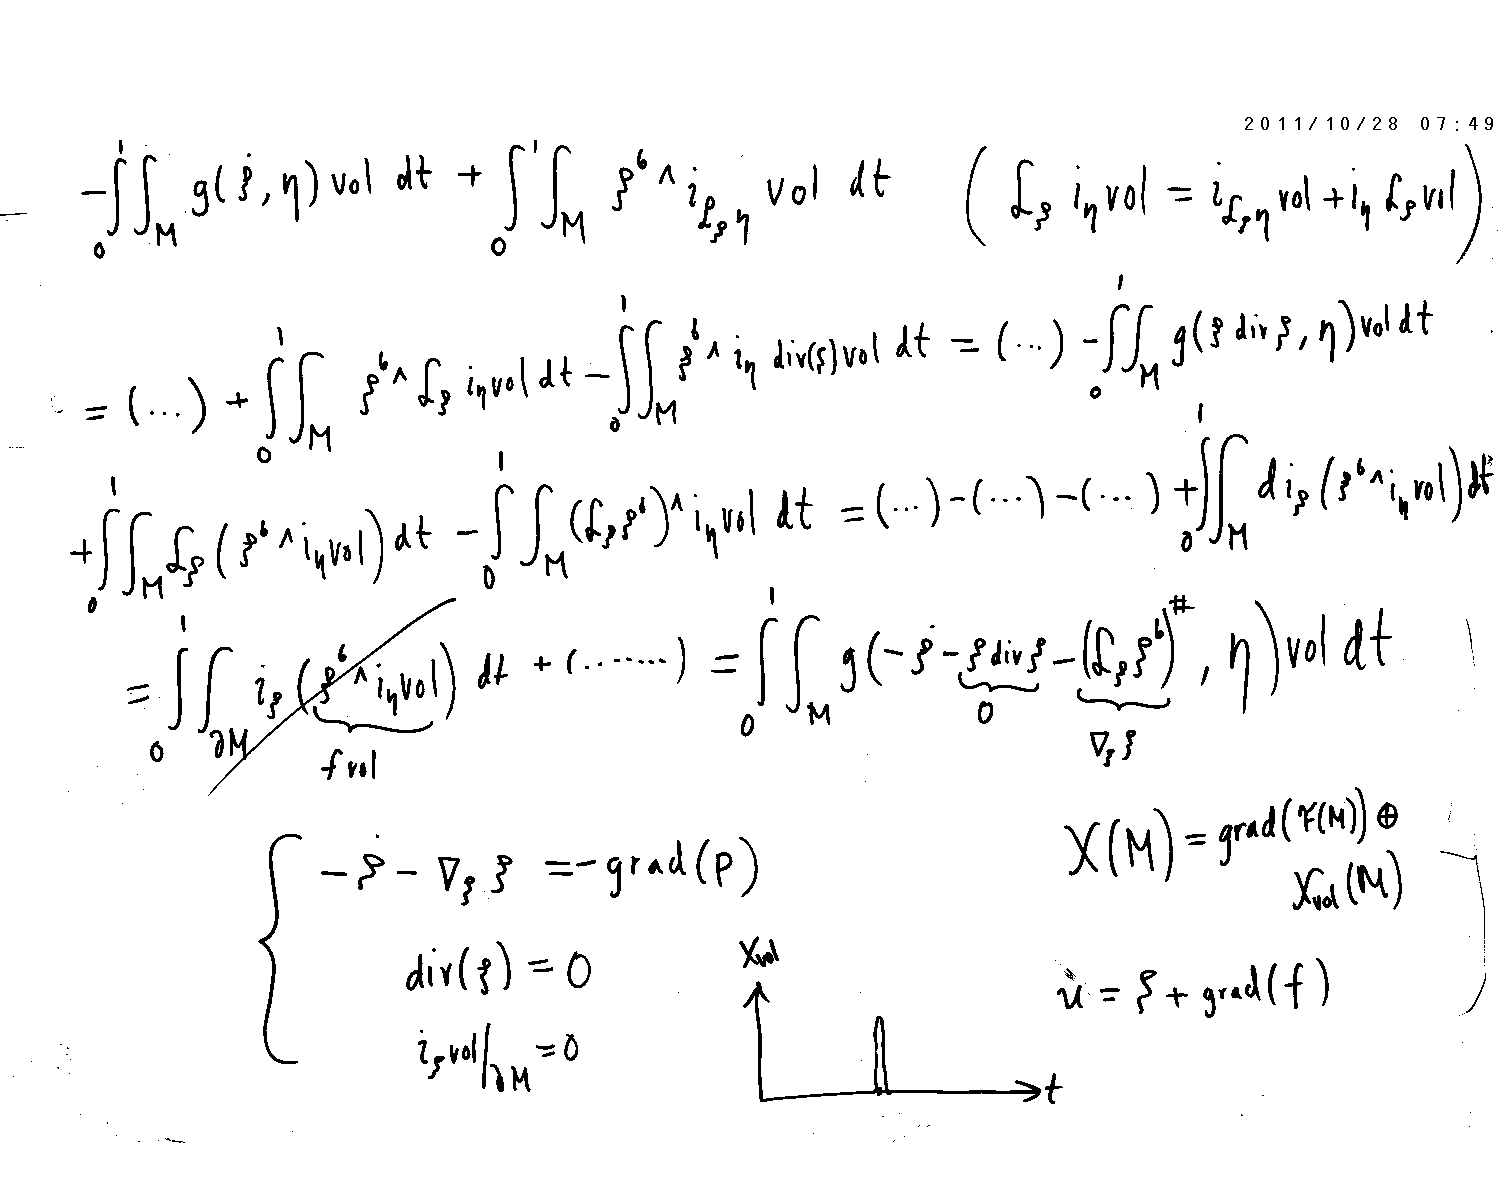 2011/10/28 07:49
-∫₀¹∫_M g(ξ̇, η) vol dt + ∫₀¹∫_M ξ^♭ ∧ i_{£_ξ η} vol dt (£_ξ i_η vol = i_{£_ξ η} vol + i_η £_ξ vol)
= (...) + ∫₀¹∫_M ξ^♭ ∧ £_ξ i_η vol dt - ∫₀¹∫_M ξ^♭ ∧ i_η div(ξ) vol dt = (...) - ∫₀¹∫_M g(ξ div ξ, η) vol dt
+ ∫₀¹∫_M £_ξ (ξ^♭ ∧ i_η vol) dt - ∫₀¹∫_M (£_ξ ξ^♭) ∧ i_η vol dt = (...) - (...) - (...) + ∫₀¹∫_M d i_ξ (ξ^♭ ∧ i_η vol) dt
= ∫₀¹∫_{∂M} i_ξ (ξ^♭ ∧ i_η vol) dt + (.......) = ∫₀¹∫_M g(-ξ̇ - ξ div ξ - (£_ξ ξ^♭)^#, η) vol dt
f vol 0 ∇_ξ ξ
-ξ̇ - ∇_ξ ξ = -grad(p)
div(ξ) = 0
i_ξ vol|_{∂M} = 0
X(M) = grad(F(M)) ⊕
X_vol(M)
X_vol
t
u̇ = ξ + grad(f)